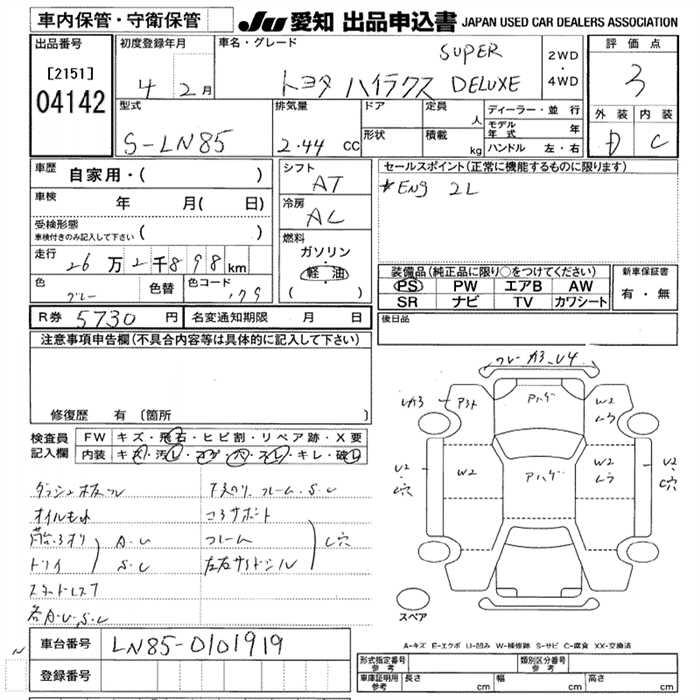 車内保管・守衛保管
JU 愛知 出品申込書 JAPAN USED CAR DEALERS ASSOCIATION
出品番号
[2151]
04142
初度登録年月
4 2月
車名・グレード
トヨタ ハイラクス SUPER DELUXE
2WD
・
4WD
評価点
3
外装 内装
D C
型式
S-LN85
排気量
2.44 cc
ドア
形状
定員
人
積載
kg
ディーラー・並行
モデル年式 年
ハンドル 左・右
車歴 自家用・( )
車検 年 月( 日)
受検形態
車検付きのみ記入して下さい ( )
走行 26万2千898km
色 グレー
色替
色コード 179
シフト
AT
冷房
AC
燃料
ガソリン
・
軽油
( )
セールスポイント(正常に機能するものに限ります)
*Eng 2L
装備品(純正品に限り○をつけてください)
PS PW エアB AW
SR ナビ TV カワシート
新車保証書
有・無
後日品
R券 5730 円
名変通知期限 月 日
注意事項申告欄(不具合内容等は具体的に記入して下さい)
修復歴 有 〔箇所 〕
検査員
記入欄
FW キズ・飛石・ヒビ割・リペア跡・X要
内装 キズ・汚レ・コゲ・穴・スレ・キレ・破レ
オイルもれ
A.U
S.C
各A.U.S.C
下廻り フレーム.S.C
コアサポート
フレーム
左右サイドシル
C穴
A3 U4
UA3
アハゲ
W2
W2
アハゲ
W2
U2
C穴
U2
C穴
スペア
A-キズ E-エクボ U-凹み W-補修跡 S-サビ C-腐食 XX-交換済
車台番号 LN85-0101919
登録番号
形式指定番号
参考
類別区分番号
参考
車庫証明用
参考
長さ cm
幅 cm
高さ cm